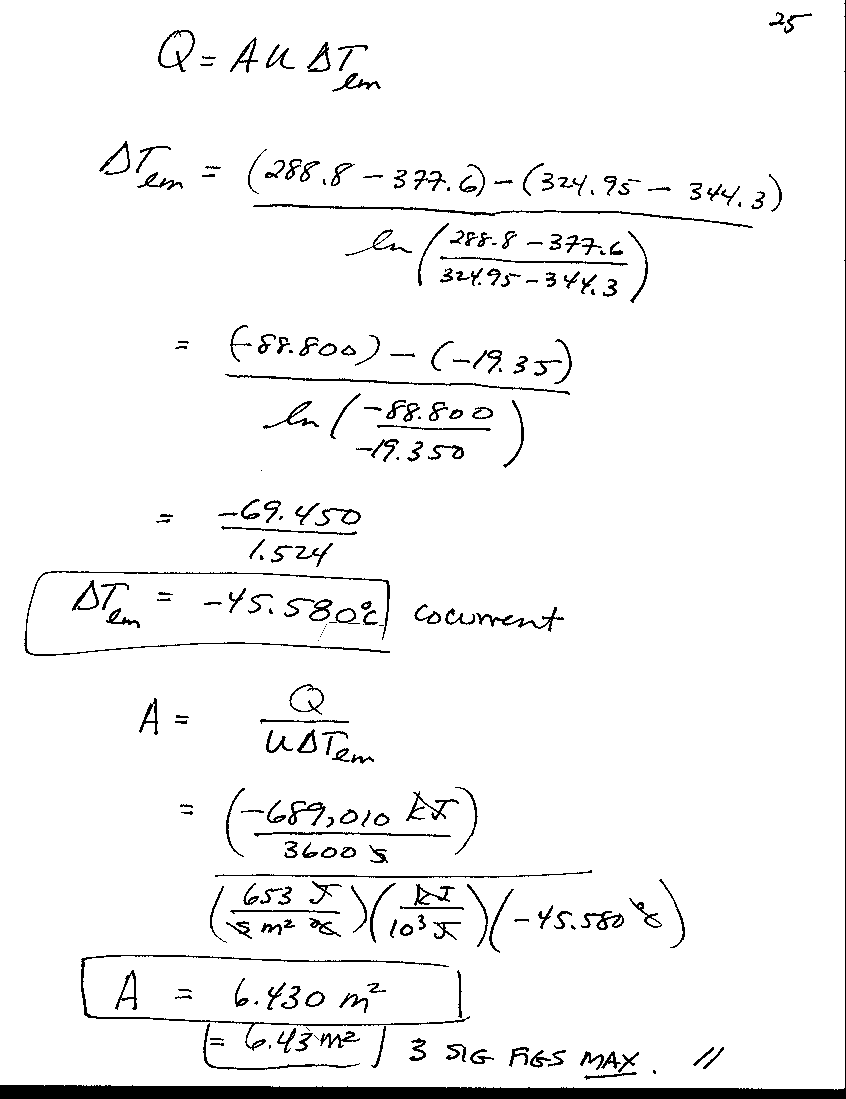 25
Q = A U ΔT_lm
ΔT_lm = ((288.8 - 377.6) - (324.95 - 344.3)) / ln((288.8 - 377.6) / (324.95 - 344.3))
= ((-88.800) - (-19.35)) / ln(-88.800 / -19.350)
= -69.450 / 1.524
ΔT_lm = -45.580°C cocurrent
A = Q / (U ΔT_lm)
= (-689,010 kJ / 3600 s) / ((653 J / s m² °C) (kJ / 10³ J) (-45.580 °C))
A = 6.430 m²
= 6.43 m² 3 SIG FIGS MAX. //